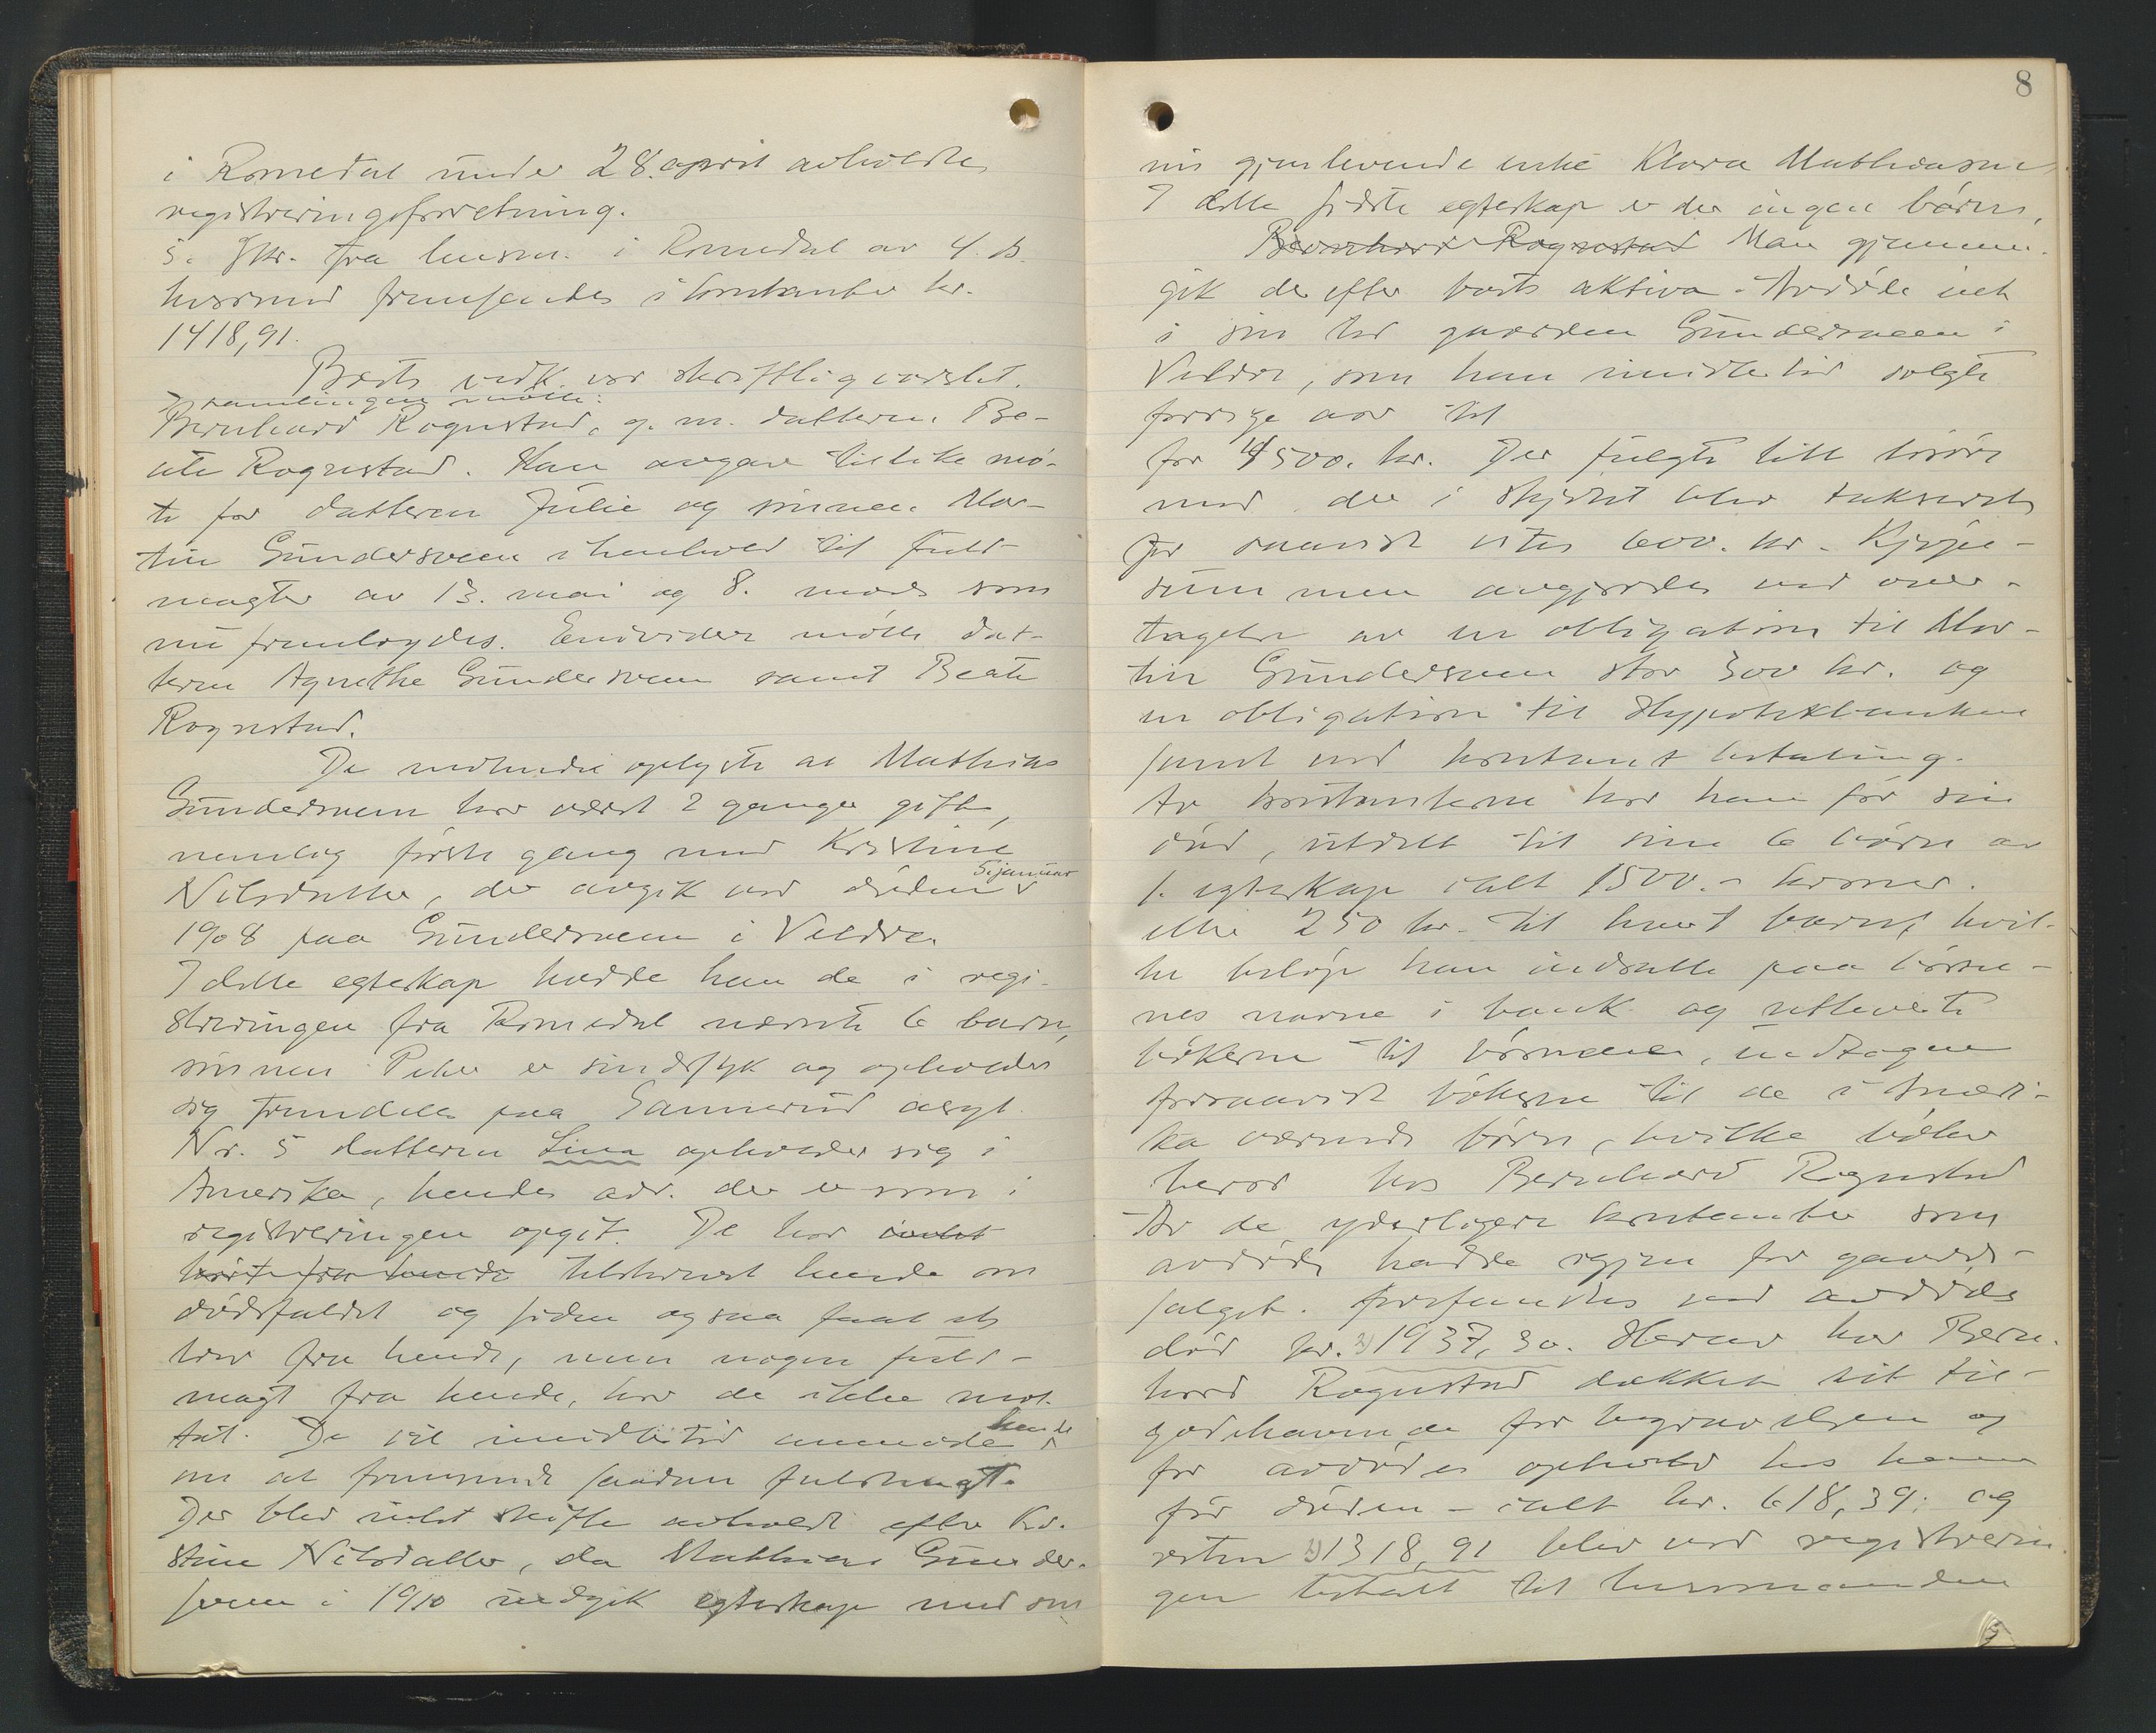 i Romedal under 28. april avholdte
registreringsforretning.
5. Skr. fra lensm. i Romedal av 4. ds.
hvormed fremsendes i kontanter kr.
1418,91.
Boets vedk. var skriftlig varslet.
I samlingen møtte:
Bernhard Rognstad, g. m. datteren Be-
ate Rognstad. Han avgav tillike mø-
te for datteren Julie og sønnen Mar-
tin Gundersveen i henhold til fuld-
magter av 13. mai og 8. marts som
nu fremlagdes. Endvidere møtte dat-
teren Agnethe Gundersveen samt Beate
Rognstad.
De møtende oplyste at Mathias
Gundersveen har været 2 ganger gift,
nemlig første gang med Kristine
Nilsdatter, der avgik ved døden 5 januar
1908 paa Gundersveen i Veldre.
I dette egteskap hadde han de i regi-
streringen fra Romedal nævnte 6 barn,
sønnen Peder er sindssyk og opholder
sig fremdeles paa Sannerud asyl.
Nr. 5 datteren Lina opholder sig i
Amerika, hendes adr. der er som i
registreringen opgit. De har intet
hørt fra hende tilskrevet hende om
dødsfaldet og siden ogsaa faat et
brev fra hende, men nogen fuld-
magt fra hende, har de ikke mot-
tat. De vil imidlertid anmode hende
om at fremsende saadan fuldmagt.
Der blev intet skifte avholdt efter Kri-
stine Nilsdatter, da Mathias Gunder-
sveen i 1910 indgik egteskap med sin
8
nu gjenlevende enke Klara Mathiasen,
I dette sidste egteskap er der ingen børn.
Bernhard Rognstad Man gjennem-
gik derefter boets aktiva. Avdøde eiet
i sin tid gaarden Gundersveen i
Veldre, som han imidlertid solgte
forrige aar til
for 4500. kr. Der fulgte litt løsøre
med der i skjøtet blev taksert
for saavidt vites 600. kr. Kjøpe-
summen avgjordes ved over-
tagelse av en obligation til Mar-
tin Gundersveen stor 300 kr. og
en obligation til Hypotekbanken
samt ved kontant betaling.
Av kontanterne har han før sin
død, utdelt til sine 6 børn av
1. egteskap ialt 1500.- kroner.
eller 250 kr. til hvert barn, hvil-
ke beløp han indsatte paa børne-
nes navne i bank og utleverte
bøkerne til børnene, undtagen
forsaavidt bøkerne til de i Ameri-
ka værende børn, hvilke bøker
beror hos Bernhard Rognstad
Av de yderligere kontanter som
avdøde hadde igjen for gaards-
salget. forefandtes ved avdødes
død kr. 1937,30. Herav har Bern-
hard Rognstad dækket sit til-
godehavende for begravelsen og
for avdødes ophold hos ham
før døden - ialt kr. 618,39: og
resten 1318,91 blev ved registrerin-
gen betalt til lensmanden